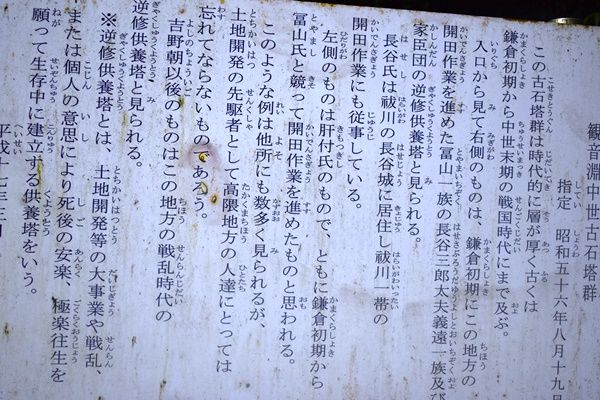 観音淵中世古石塔群
指定 昭和五十六年八月十九日
この古石塔群は時代的に層が厚く古くは
鎌倉初期から中世末期の戦国時代にまで及ぶ。
入口から見て右側のものは、鎌倉初期にこの地方の
開田作業を進めた富山一族の長谷三郎大夫義遠一族及び
家臣団の逆修供養塔と見られる。
長谷氏は祓川の長谷城に居住し祓川一帯の
開田作業にも従事している。
左側のものは肝付氏のもので、ともに鎌倉初期から
富山氏と競って開田作業を進めたものと思われる。
このような例は他所にも数多く見られるが、
土地開発の先駆者として高隈地方の人達にとっては
忘れてならないものであろう。
吉野朝以後のものはこの地方の戦乱時代の
逆修供養塔と見られる。
※逆修供養塔とは、土地開発等の大事業や戦乱、
または個人の意思により死後の安楽、極楽往生を
願って生存中に建立する供養塔をいう。
平成十七年三月